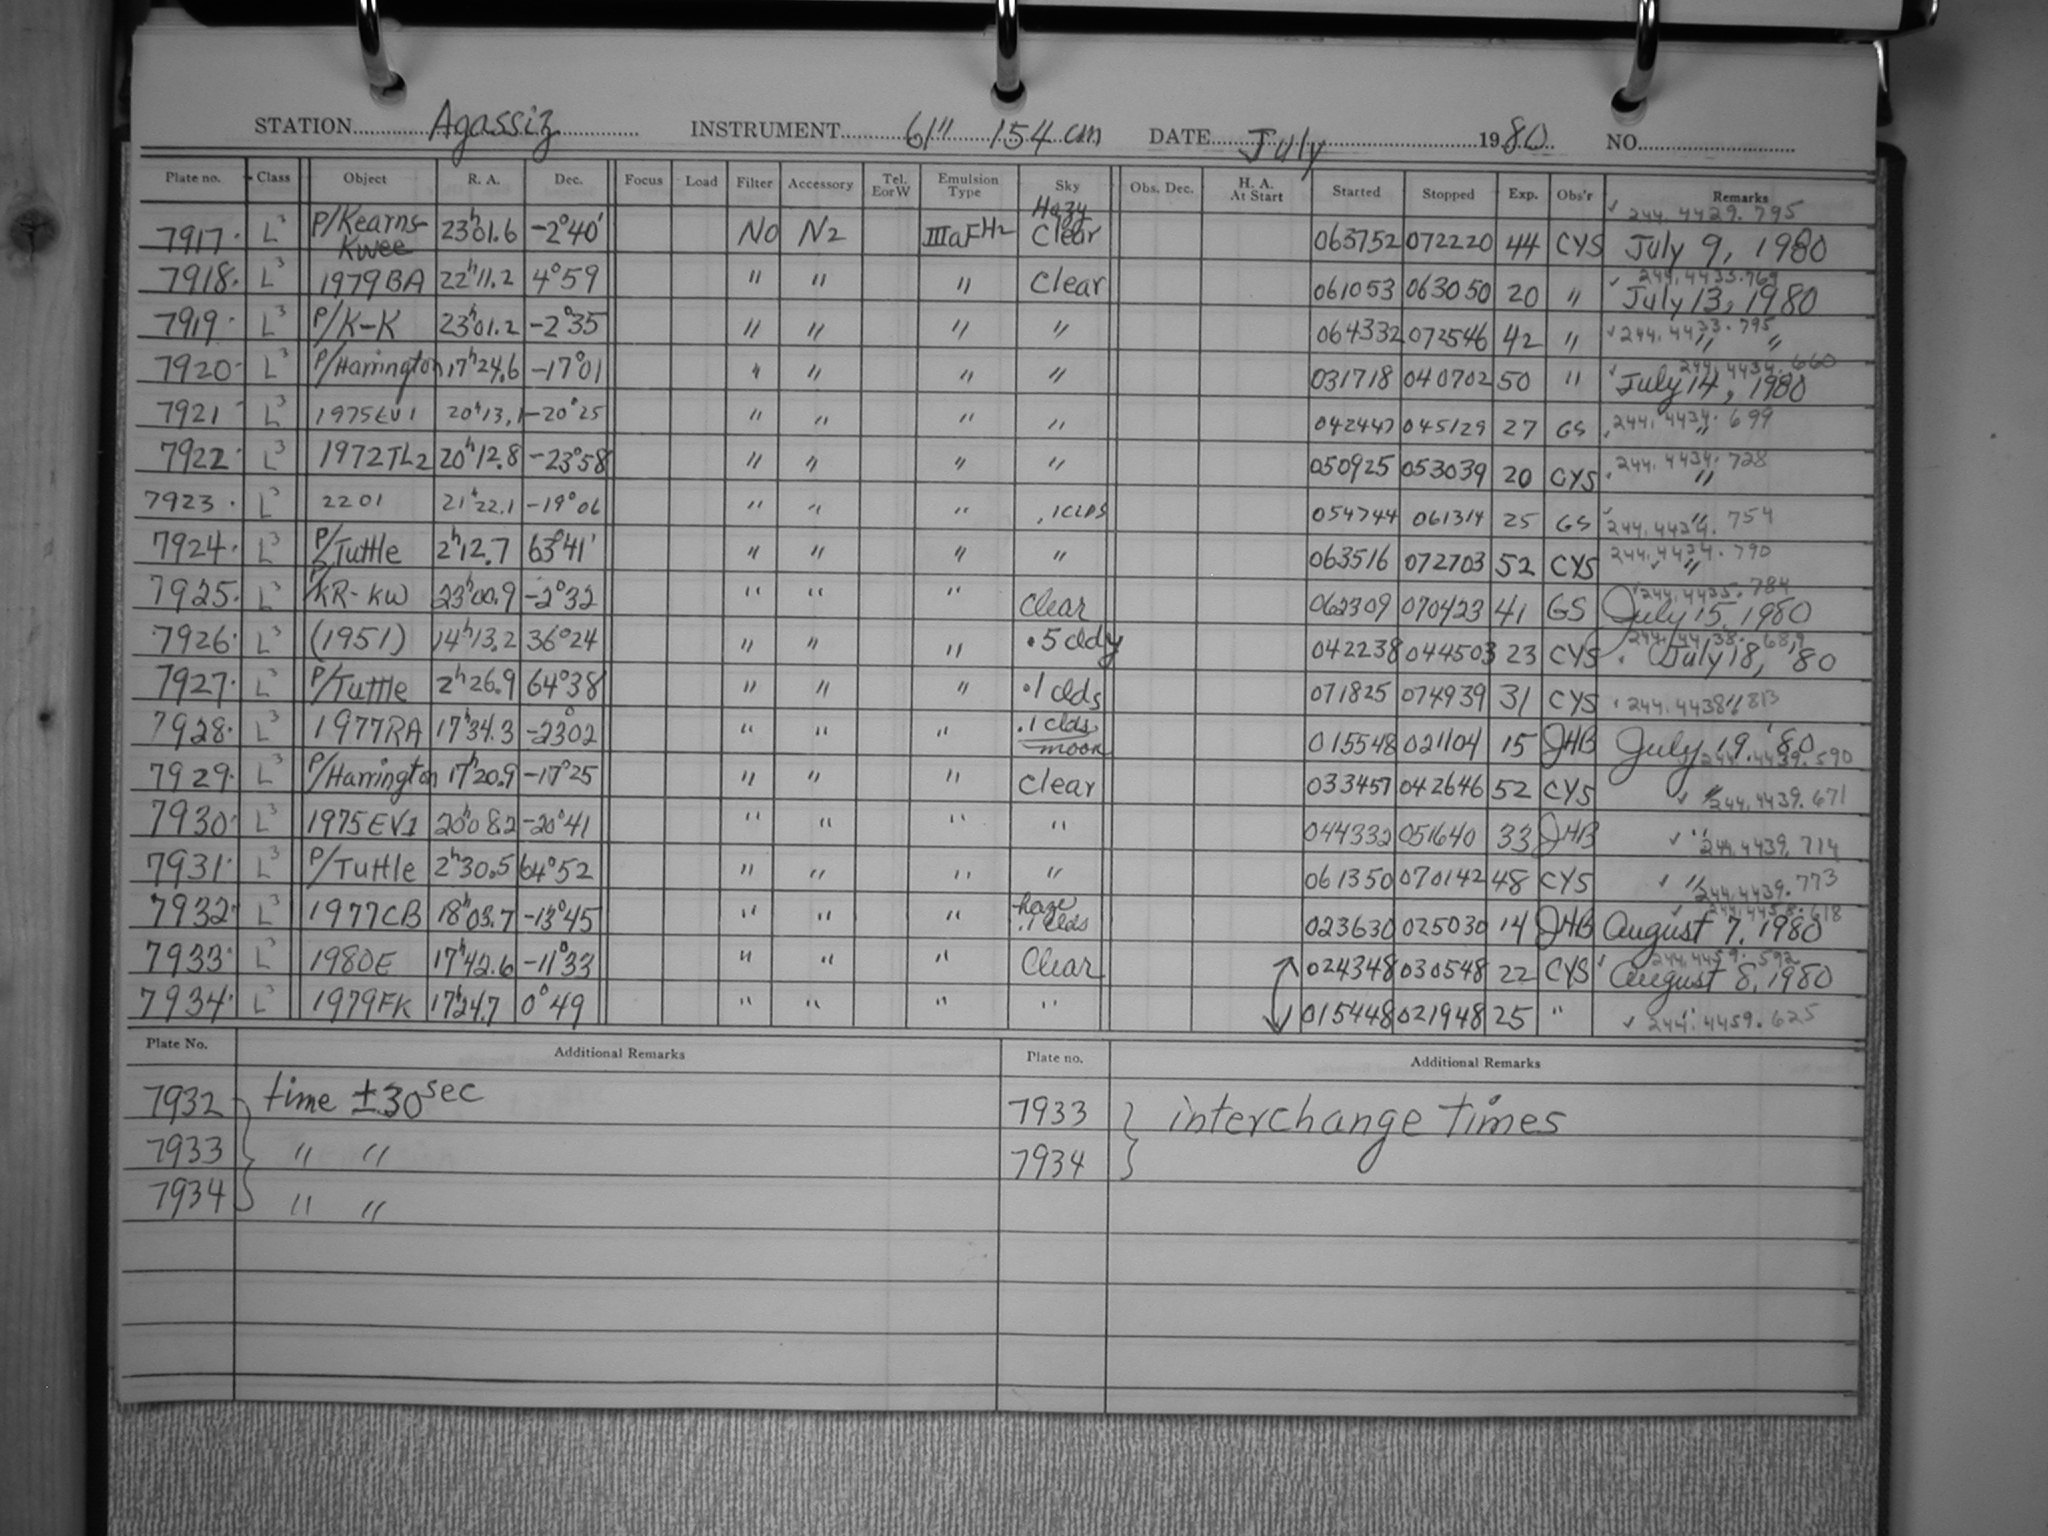 STATION Agassiz INSTRUMENT 61" 154 cm DATE July 1980 NO.
Plate no. Class Object R. A. Dec. Focus Load Filter Accessory Tel. EorW Emulsion Type Sky Obs. Dec. H. A. At Start Started Stopped Exp. Obs'r Remarks
7917 L³ P/Kearns-Kwee 23ʰ01.6 -2°40' No N2 IIIaFH2 Hazy Clear 063752 072220 44 CYS 244.4429.795 July 9, 1980
7918 L³ 1979BA 22ʰ11.2 4°59 " " " Clear 061053 063050 20 " 244.4433.769 July 13, 1980
7919 L³ P/K-K 23ʰ01.2 -2°35 " " " " 064332 072546 42 " 244.4433.795 " "
7920 L³ P/Harrington 17ʰ24.6 -17°01 " " " " 031718 040702 50 " 244.4434.660 July 14, 1980
7921 L³ 1975EV1 20ʰ13.1 -20°25 " " " " 042447 045129 27 GS 244.4434.699 "
7922 L³ 1972TL2 20ʰ12.8 -23°58 " " " " 050925 053039 20 CYS 244.4434.728 "
7923 L³ 2201 21ʰ22.1 -19°06 " " " .1CLDS 054744 061314 25 GS 244.4434.754 "
7924 L³ P/Tuttle 2ʰ12.7 63°41' " " " " 063516 072703 52 CYS 244.4434.790 "
7925 L³ P/KR-KW 23ʰ00.9 -2°32 " " " Clear 062309 070423 41 GS 244.4435.784 July 15, 1980
7926 L³ (1951) 14ʰ13.2 36°24 " " " .5 cldy 042238 044503 23 CYS 244.4438.689 July 18, '80
7927 L³ P/Tuttle 2ʰ26.9 64°38 " " " .1 clds 071825 074939 31 CYS 244.4438.813 "
7928 L³ 1977RA 17ʰ34.3 -23°02 " " " .1 clds moon 015548 021104 15 JHB July 19, '80 244.4439.590
7929 L³ P/Harrington 17ʰ20.9 -17°25 " " " Clear 033457 042646 52 CYS " 244.4439.671
7930 L³ 1975EV1 20ʰ08.2 -20°41 " " " " 044332 051640 33 JHB " 244.4439.714
7931 L³ P/Tuttle 2ʰ30.5 64°52 " " " " 061350 070142 48 CYS " 244.4439.773
7932 L³ 1977CB 18ʰ03.7 -13°45 " " " haze .1 clds 023630 025030 14 JHB 244.4458.618 August 7, 1980
7933 L³ 1980E 17ʰ42.6 -11°33 " " " Clear 024348 030548 22 CYS 244.4459.592 August 8, 1980
7934 L³ 1979FK 17ʰ24.7 0°49 " " " " 015448 021948 25 " " 244.4459.625
Plate No. Additional Remarks Plate no. Additional Remarks
7932 time ±30 sec 7933 interchange times
7933 " " 7934
7934 " "